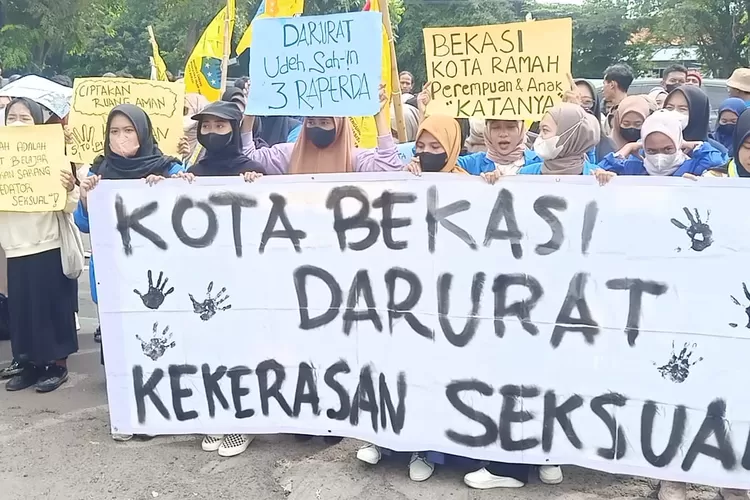 DARURAT
Udeh Sah-in
3 RAPERDA
BEKASI
KOTA RAMAH
Perempuan & Anak
"KATANYA
CIPTAKAN
RUANG AMAN
BELAJAR
SARANG
SEKSUAL"!
KOTA BEKASI
DARURAT
KEKERASAN SEKSUA